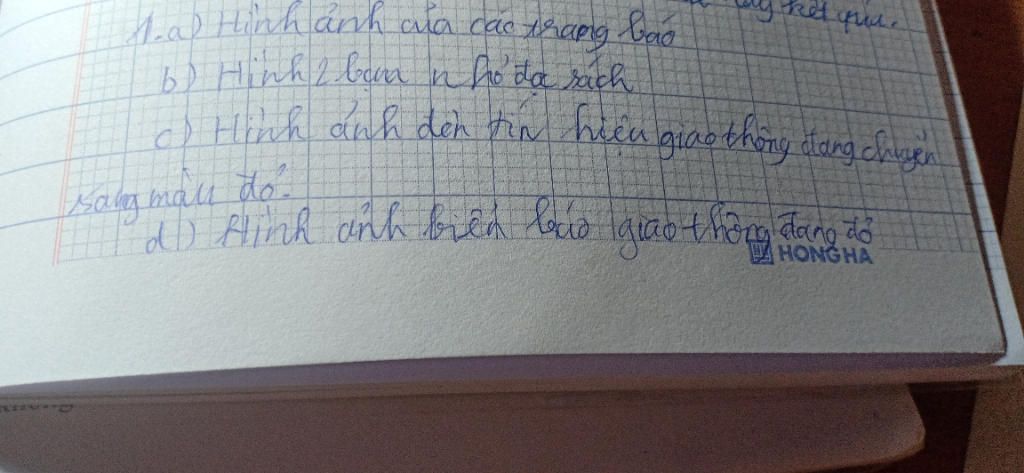 kết quả.
1.a) Hình ảnh của các trang báo
b) Hình 2 bạn nhỏ đọc sách
c) Hình ảnh đèn tín hiệu giao thông đang chuyển
sang màu đỏ.
d) Hình ảnh biển báo giao thông đang đỏ
HONG HA